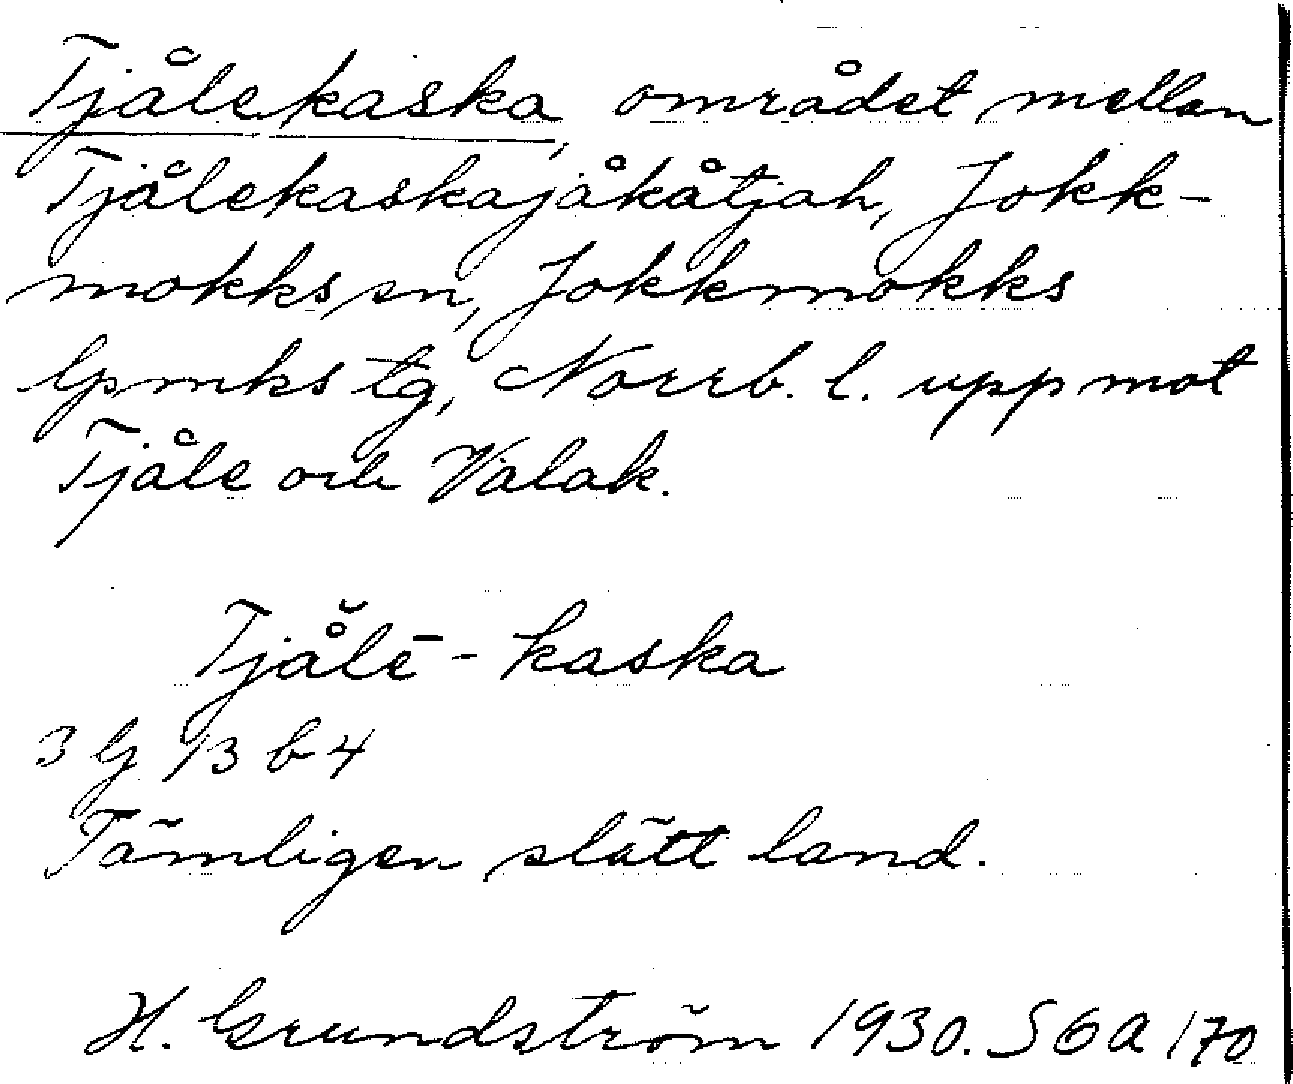 Tjålekaska, området mellan
Tjålekaskajåkåtjah, Jokk-
mokks sn, Jokkmokks
lpmks tg, Norrb. l. upp mot
Tjåle och Valak.
Tjå̆lē-kaska
3 G 13 b 4
Tämligen slätt land.
H. Grundström 1930. S 6 a 170